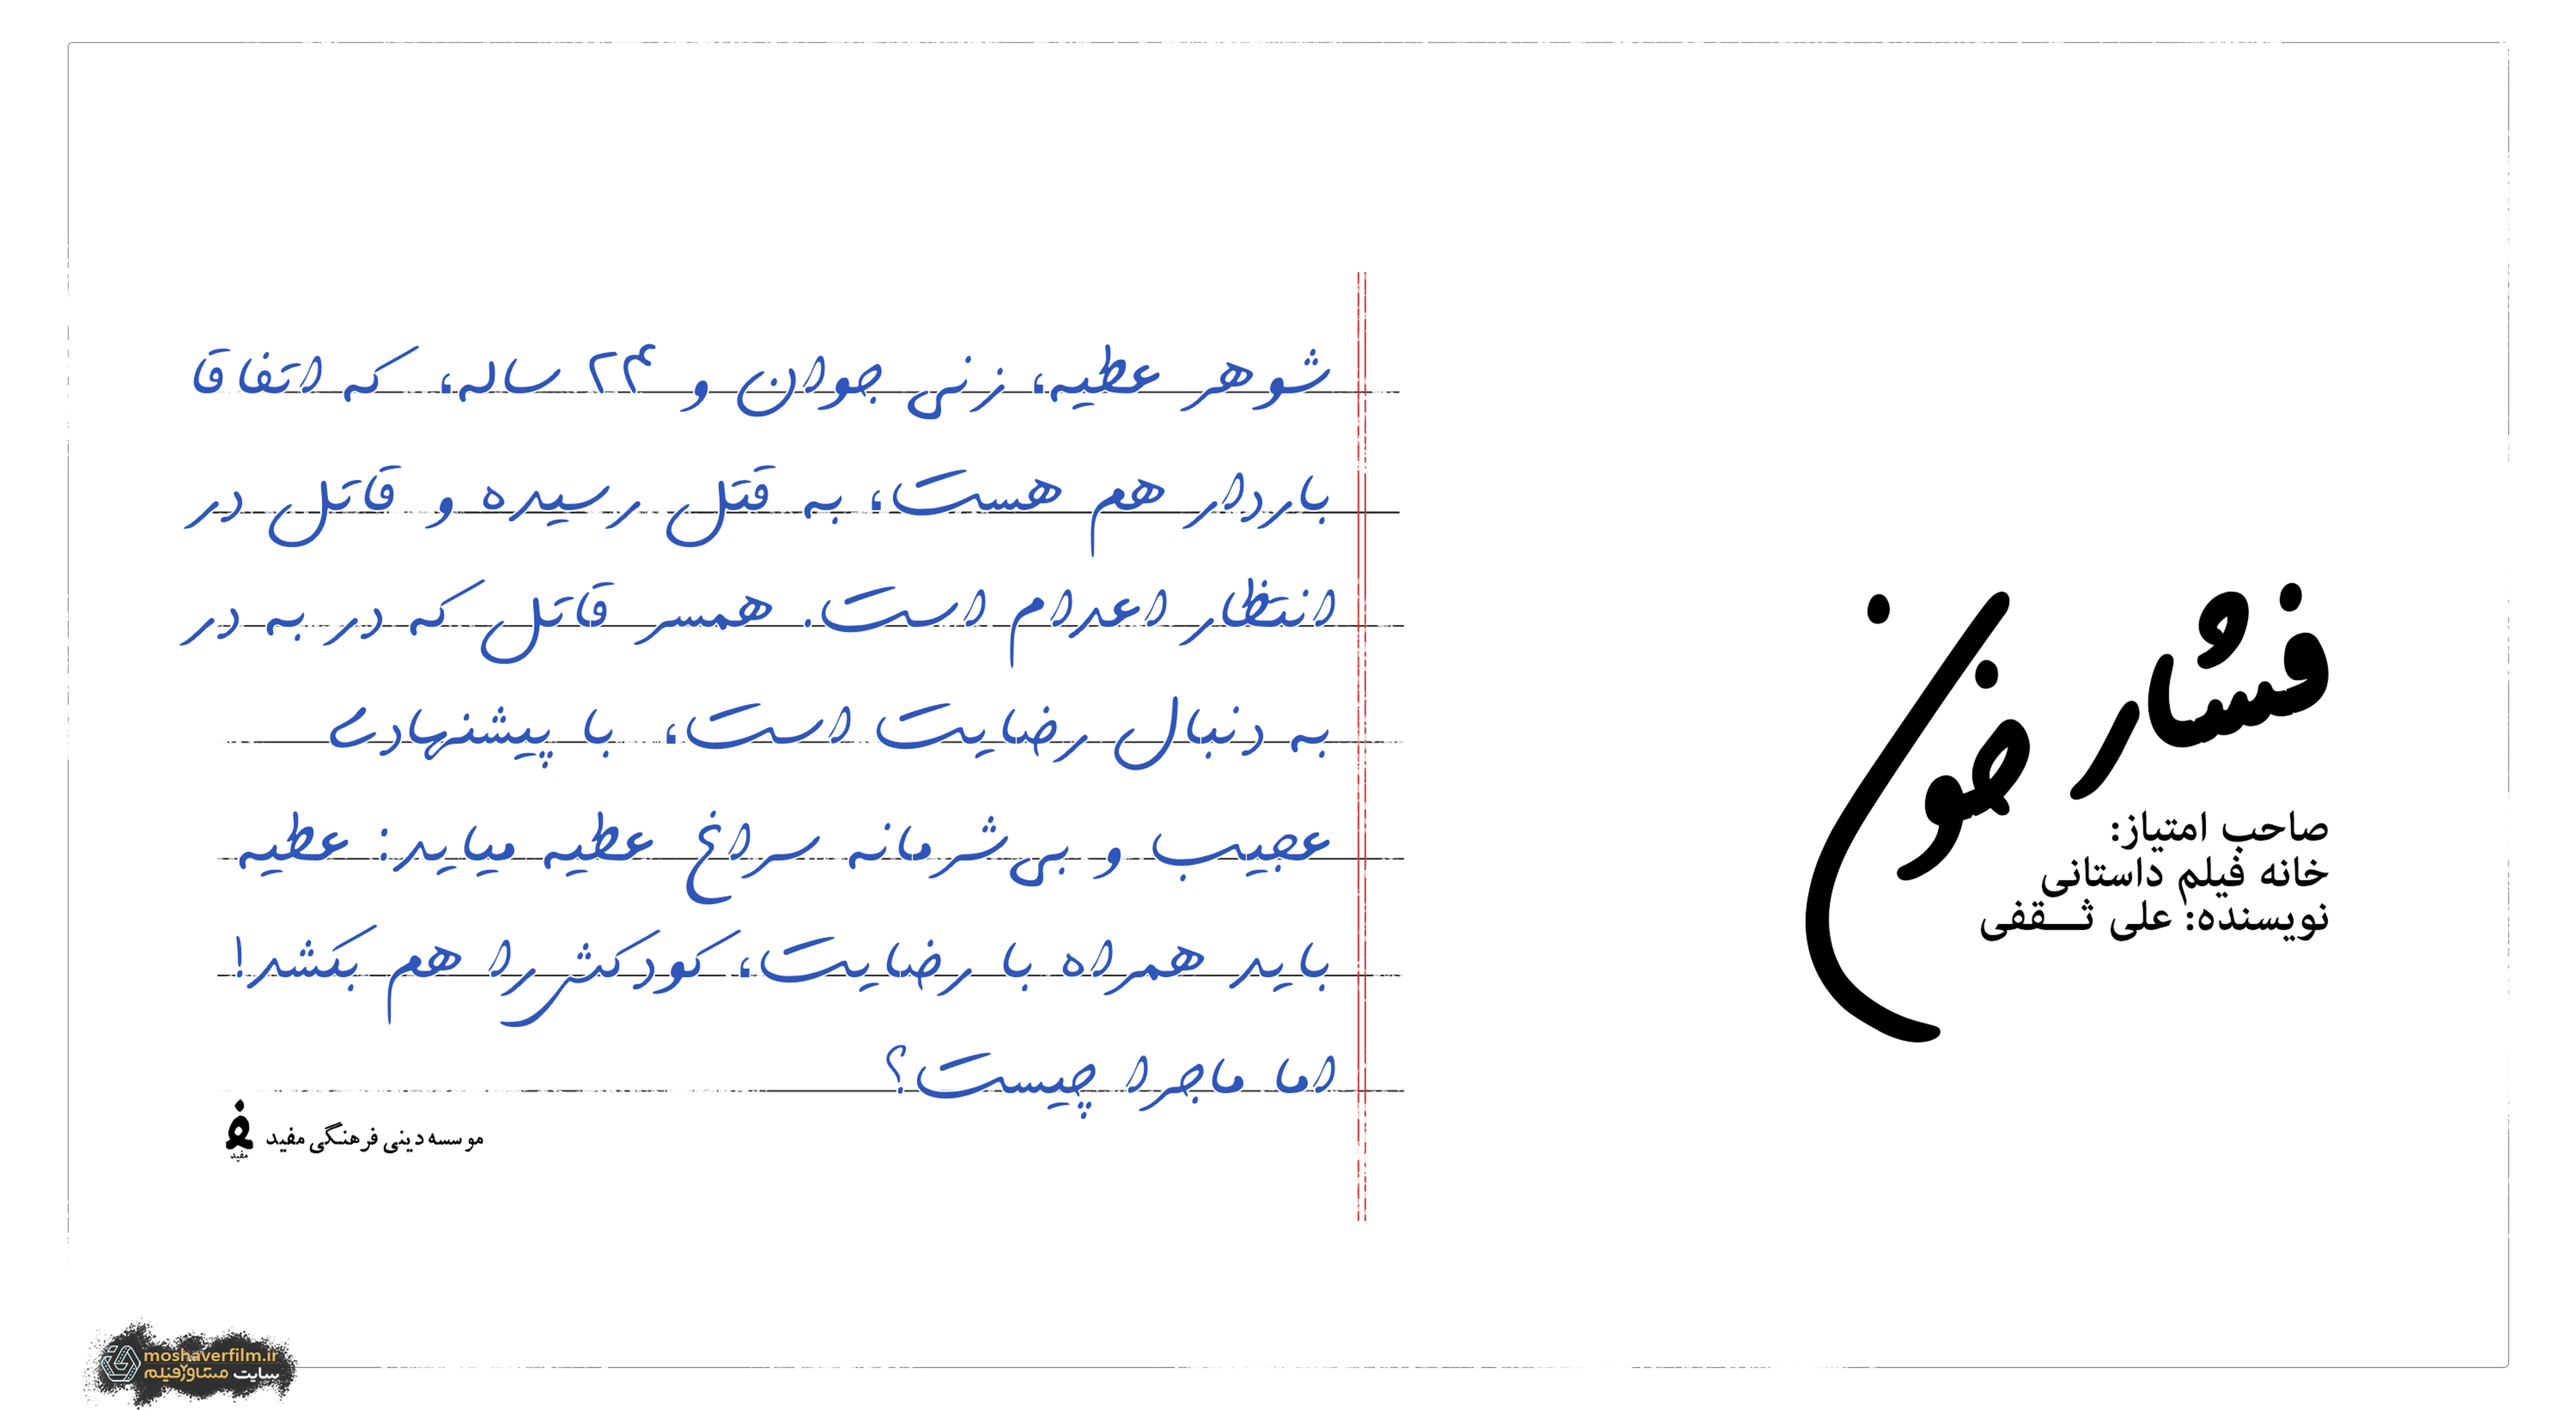 فشار خون
صاحب امتیاز:
خانه فیلم داستانی
نویسنده: علی ثقفی
شوهر عطیه، زنی جوان و ۲۴ ساله، که اتفاقا
باردار هم هست، به قتل رسیده و قاتل در
انتظار اعدام است. همسر قاتل که در به در
به دنبال رضایت است، با پیشنهادی
عجیب و بی‌شرمانه سراغ عطیه میاید: عطیه
باید همراه با رضایت، کودکش را هم بکشد!
اما ماجرا چیست؟
موسسه دینی فرهنگی مفید
مفید
moshaverfilm.ir
سایت مشاورفیلم